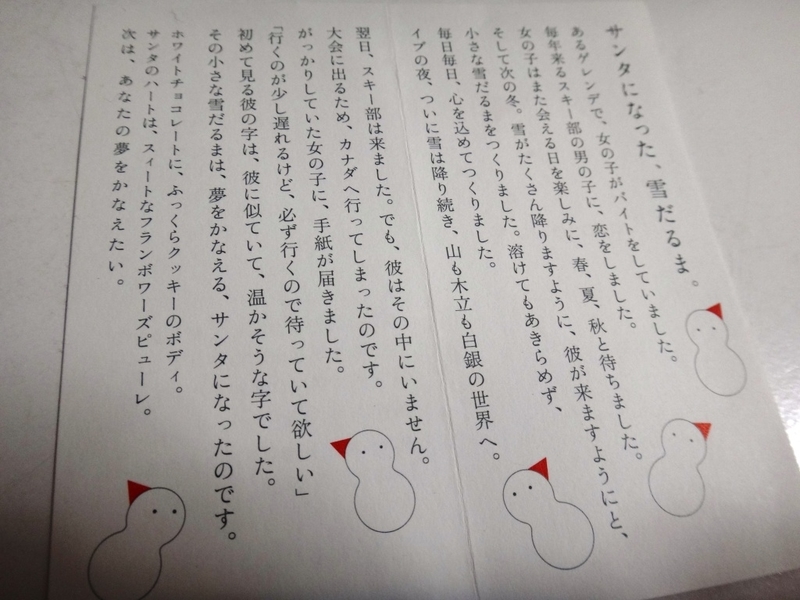 サンタになった、雪だるま。
あるゲレンデで、女の子がバイトをしていました。
毎年来るスキー部の男の子に、恋をしました。
女の子はまた会える日を楽しみに、春、夏、秋と待ちました。
そして次の冬。雪がたくさん降りますように、彼が来ますようにと、
小さな雪だるまをつくりました。溶けてもあきらめず、
毎日毎日、心を込めてつくりました。
イブの夜、ついに雪は降り続き、山も木立も白銀の世界へ。
翌日、スキー部は来ました。でも、彼はその中にいません。
大会に出るため、カナダへ行ってしまったのです。
がっかりしていた女の子に、手紙が届きました。
「行くのが少し遅れるけど、必ず行くので待っていて欲しい」
初めて見る彼の字は、彼に似ていて、温かそうな字でした。
その小さな雪だるまは、夢をかなえる、サンタになったのです。
ホワイトチョコレートに、ふっくらクッキーのボディ。
サンタのハートは、スィートなフランボワーズピューレ。
次は、あなたの夢をかなえたい。